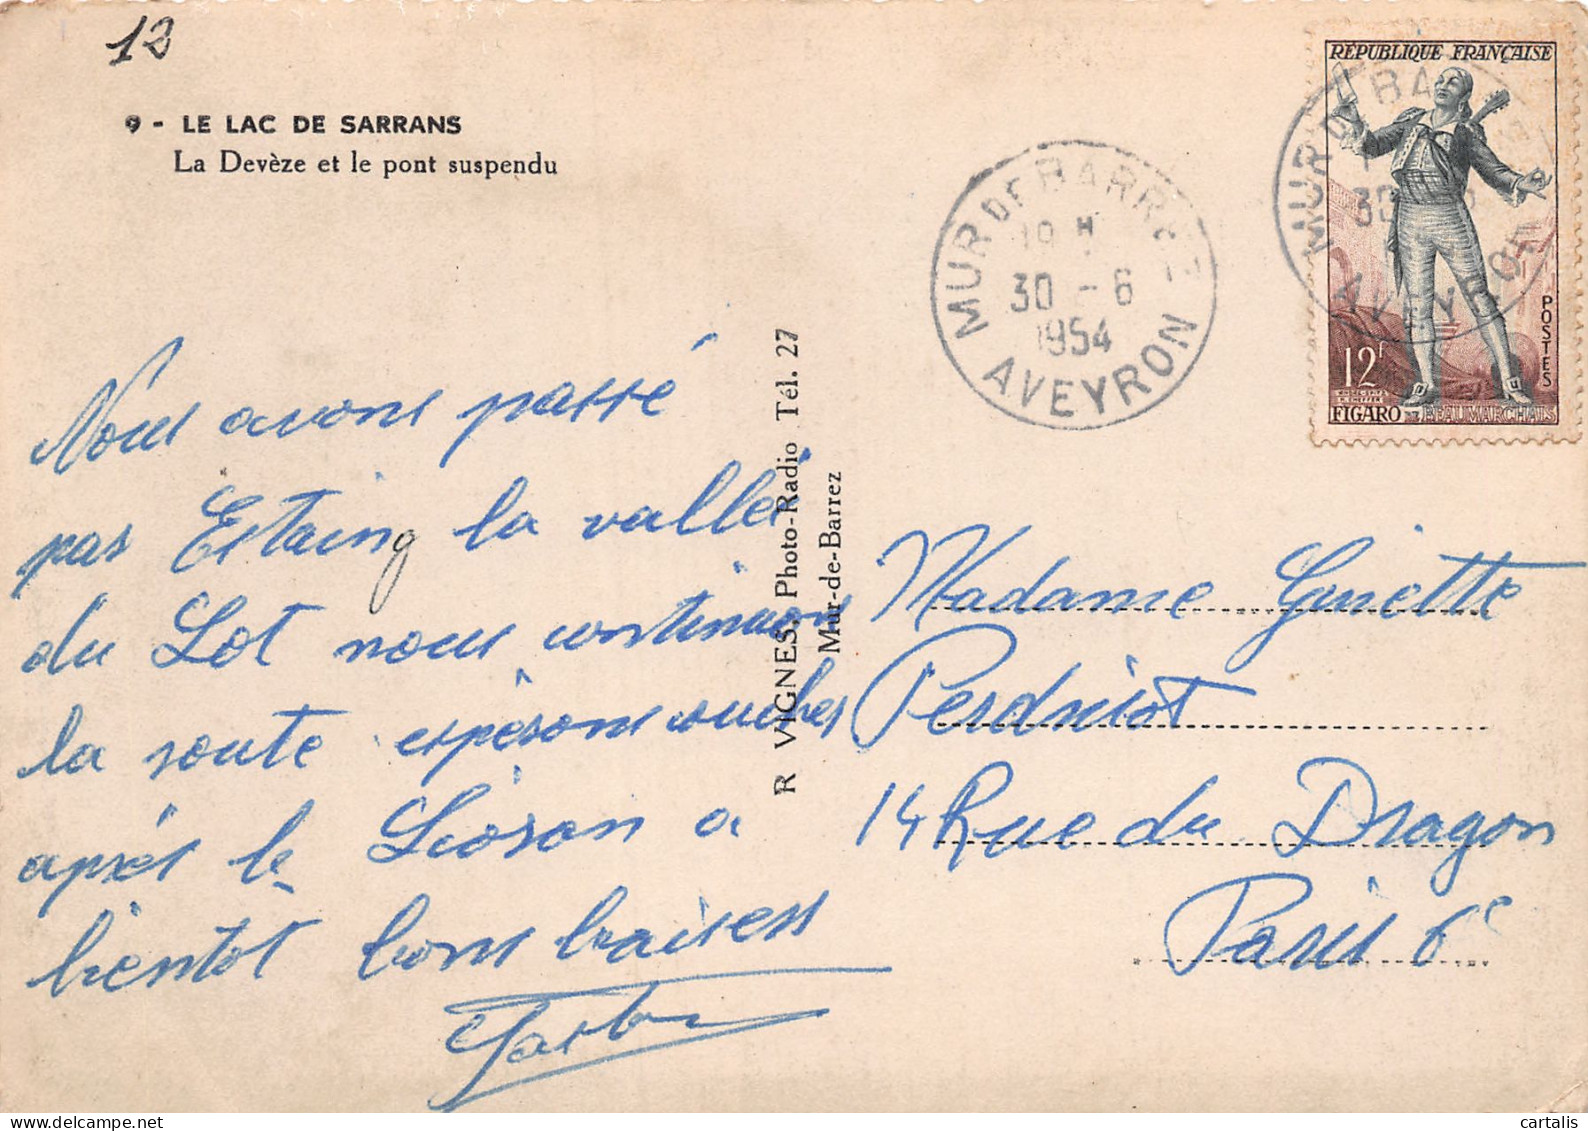 12
9 - LE LAC DE SARRANS
La Devèze et le pont suspendu
RÉPUBLIQUE FRANÇAISE
POSTES
12F
FIGARO DE BEAUMARCHAIS
MUR DE BARREZ
19 H
30 - 6
1954
AVEYRON
MUR DE BA
30
AVEYRON
Nous avons passé
par Estaing la vallée
du Lot nous continuons
la route espérons coucher
après le Lioran a
bientôt bons baisers
R VIGNES, Photo-Radio Tél. 27
Mur-de-Barrez
Madame Ginette
Perdriiot
14 Rue du Dragon
Paris 6e
cartalis
www.delcampe.net